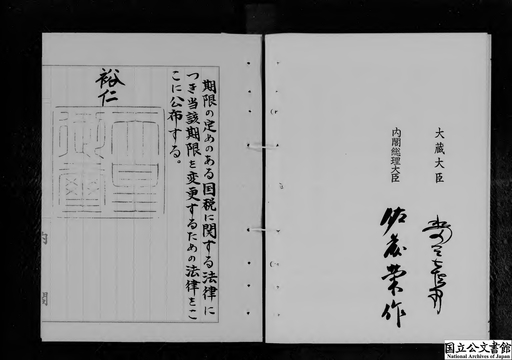 期限の定めのある国税に関する法律に
つき当該期限を変更するための法律をこ
こに公布する。
裕仁
天皇
御璽
内閣
大蔵大臣
内閣総理大臣
佐藤榮作
国立公文書館
National Archives of Japan